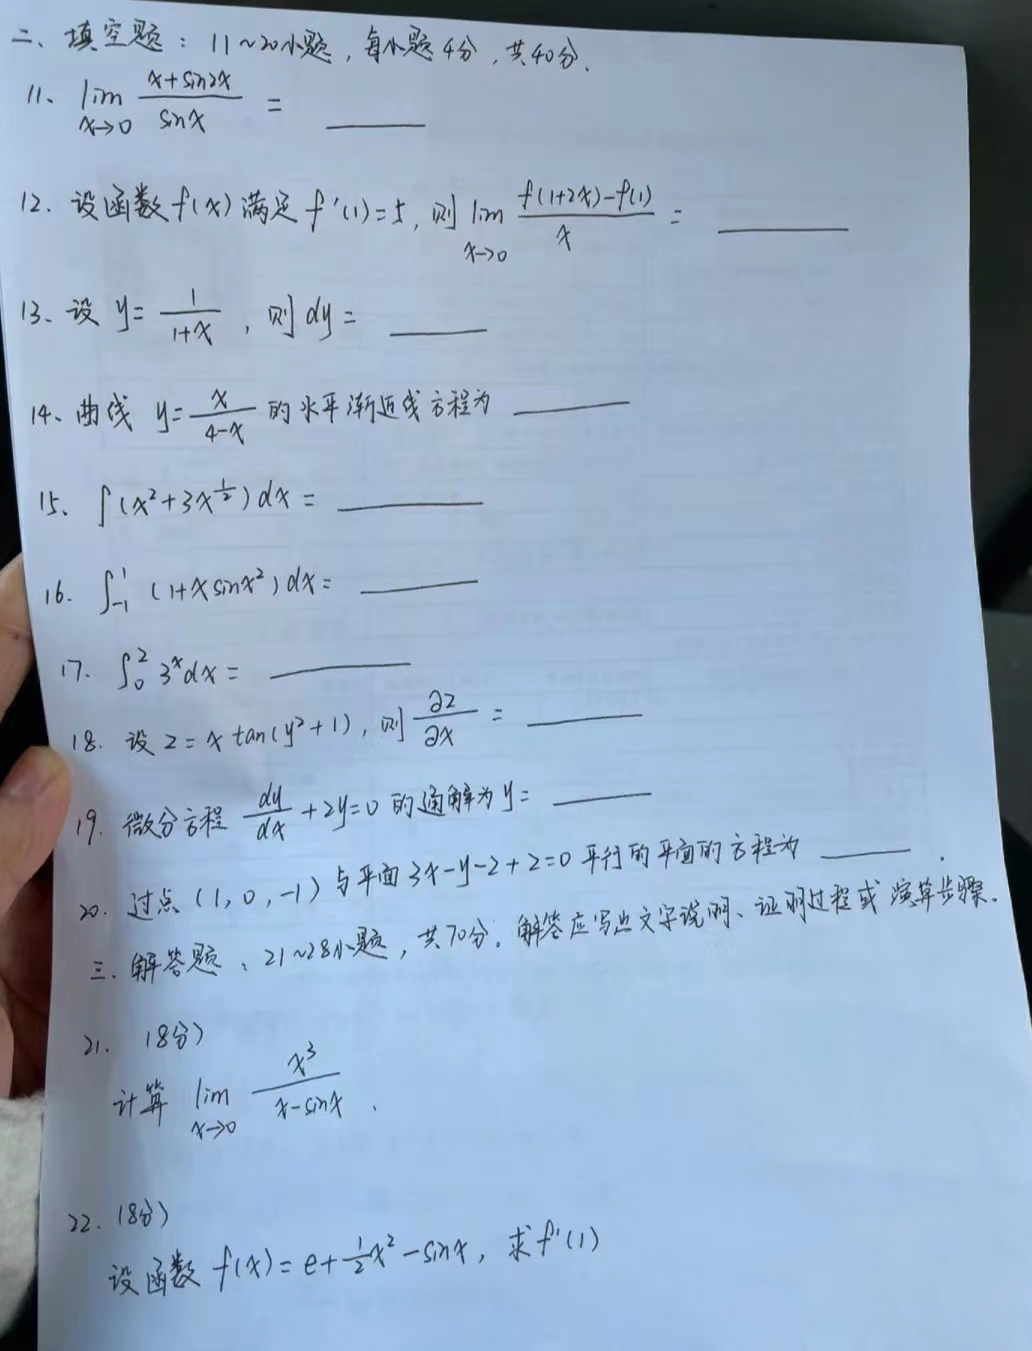 二、填空题：11~20小题，每小题4分，共40分.
11、lim x→0 (x+sin2x)/sinx = ____
12、设函数f(x)满足f'(1)=5，则 lim x→0 (f(1+2x)-f(1))/x = ____
13、设 y= 1/(1+x)，则 dy= ____
14、曲线 y= x/(4-x) 的水平渐近线方程为 ____
15、∫(x²+3x^(1/2))dx = ____
16. ∫_{-1}^{1} (1+xsinx²)dx= ____
17. ∫_0^2 3^x dx= ____
18. 设z=x tan(y²+1)，则 ∂z/∂x = ____
19. 微分方程 dy/dx +2y=0 的通解为y= ____
20. 过点(1,0,-1)与平面3x-y-z+2=0平行的平面的方程为 ____.
三.解答题：21~28小题，共70分。解答应写出文字说明、证明过程或演算步骤.
21. (8分)
计算 lim x→0 x³/(x-sinx).
22. (8分)
设函数 f(x)=e+½x²-sinx，求f'(1)